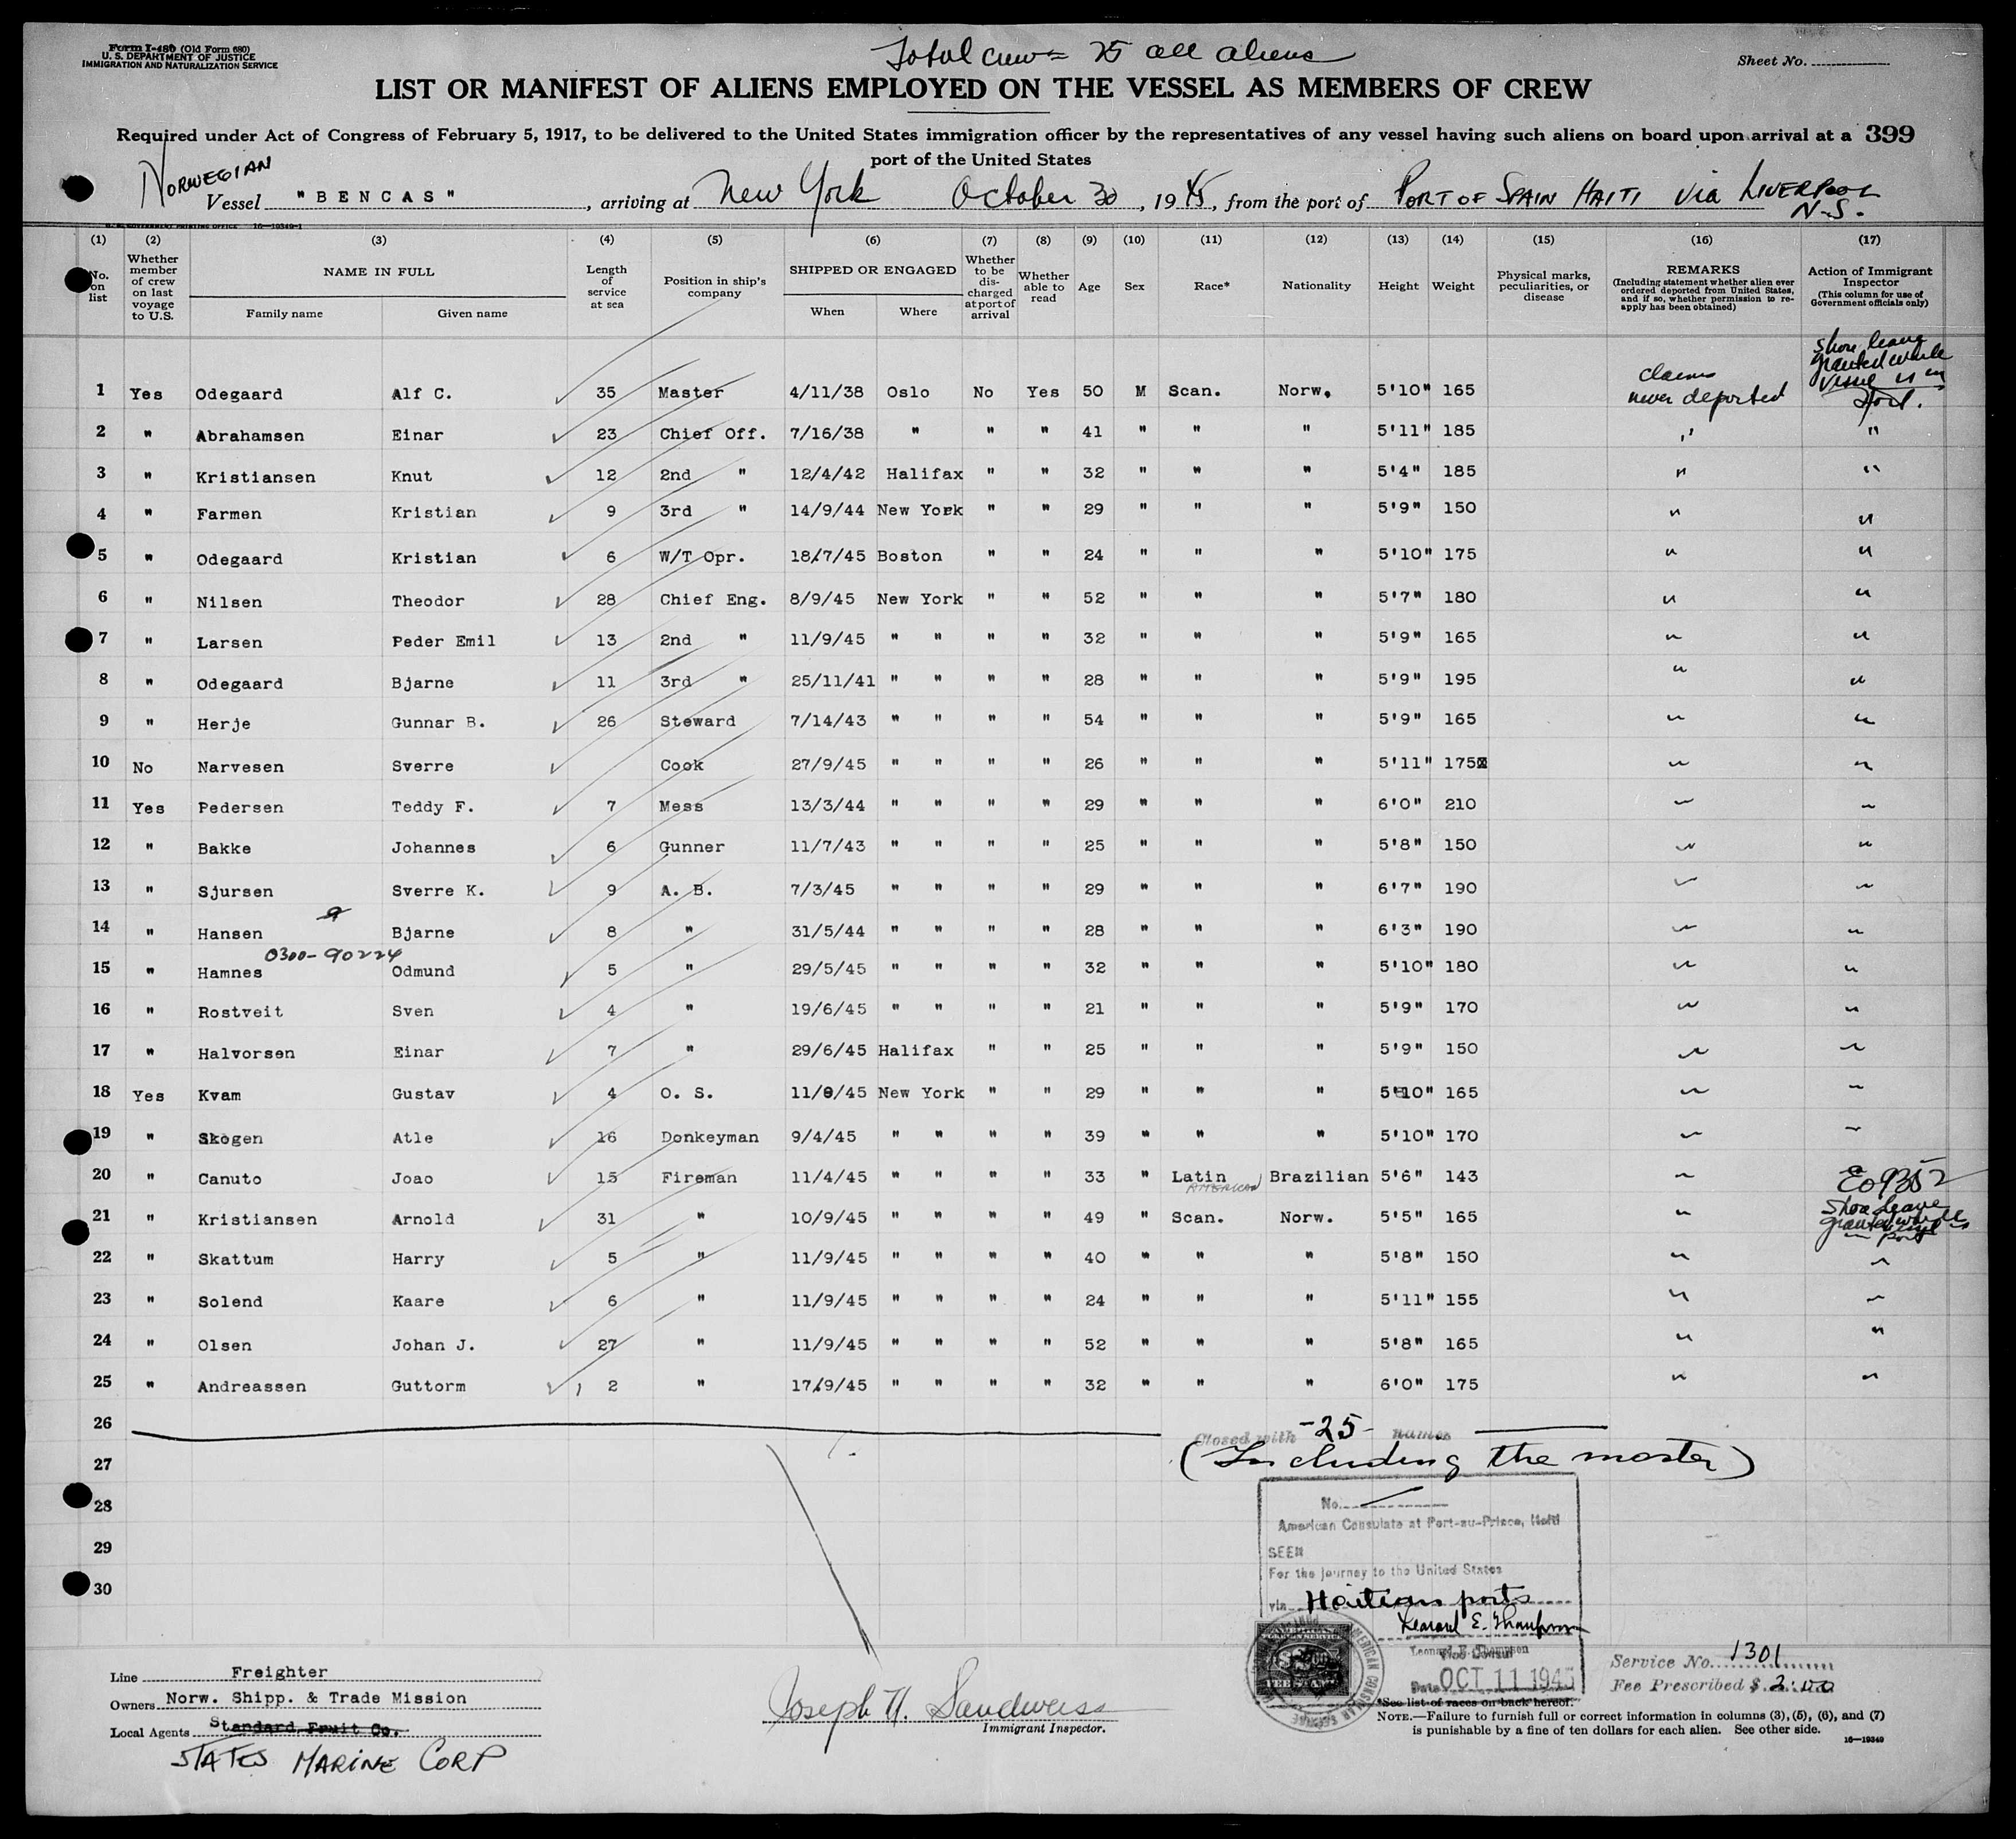 Form I-480 (Old Form 680)
U. S. DEPARTMENT OF JUSTICE
IMMIGRATION AND NATURALIZATION SERVICE
Total crew = 25 all aliens
Sheet No.
LIST OR MANIFEST OF ALIENS EMPLOYED ON THE VESSEL AS MEMBERS OF CREW
Required under Act of Congress of February 5, 1917, to be delivered to the United States immigration officer by the representatives of any vessel having such aliens on board upon arrival at a 399
port of the United States
NORWEGIAN
Vessel "BENCAS", arriving at New York October 30, 1945, from the port of PORT OF SPAIN HAITI via LIVERPOOL
N-S.
(1) (2) (3) (4) (5) (6) (7) (8) (9) (10) (11) (12) (13) (14) (15) (16) (17)
No. on list Whether member of crew on last voyage to U.S. NAME IN FULL Family name Given name Length of service at sea Position in ship's company SHIPPED OR ENGAGED When Where Whether to be discharged at port of arrival Whether able to read Age Sex Race* Nationality Height Weight Physical marks, peculiarities, or disease REMARKS (Including statement whether alien ever ordered deported from United States, and if so, whether permission to reapply has been obtained) Action of Immigrant Inspector (This column for use of Government officials only)
1 Yes Odegaard Alf C. 35 Master 4/11/38 Oslo No Yes 50 M Scan. Norw. 5'10" 165 claims never deported Shore leave granted while vessel is in Port.
2 " Abrahamsen Einar 23 Chief Off. 7/16/38 " " " 41 " " " 5'11" 185 " "
3 " Kristiansen Knut 12 2nd " 12/4/42 Halifax " " 32 " " " 5'4" 185 " "
4 " Farmen Kristian 9 3rd " 14/9/44 New York " " 29 " " " 5'9" 150 " "
5 " Odegaard Kristian 6 W/T Opr. 18/7/45 Boston " " 24 " " " 5'10" 175 " "
6 " Nilsen Theodor 28 Chief Eng. 8/9/45 New York " " 52 " " " 5'7" 180 " "
7 " Larsen Peder Emil 13 2nd " 11/9/45 " " " " 32 " " " 5'9" 165 " "
8 " Odegaard Bjarne 11 3rd " 25/11/41 " " " " 28 " " " 5'9" 195 " "
9 " Herje Gunnar B. 26 Steward 7/14/43 " " " " 54 " " " 5'9" 165 " "
10 No Narvesen Sverre Cook 27/9/45 " " " " 26 " " " 5'11" 175 " "
11 Yes Pedersen Teddy F. 7 Mess 13/3/44 " " " " 29 " " " 6'0" 210 " "
12 " Bakke Johannes 6 Gunner 11/7/43 " " " " 25 " " " 5'8" 150 " "
13 " Sjursen Sverre K. 9 A. B. 7/3/45 " " " " 29 " " " 6'7" 190 " "
14 " Hansen Bjarne 8 " 31/5/44 " " " " 28 " " " 6'3" 190 " "
0300-90224
15 " Hamnes Odmund 5 " 29/5/45 " " " " 32 " " " 5'10" 180 " "
16 " Rostveit Sven 4 " 19/6/45 " " " " 21 " " " 5'9" 170 " "
17 " Halvorsen Einar 7 " 29/6/45 Halifax " " 25 " " " 5'9" 150 " "
18 Yes Kvam Gustav 4 O. S. 11/9/45 New York " " 29 " " " 5'10" 165 " "
19 " Skogen Atle 16 Donkeyman 9/4/45 " " " " 39 " " " 5'10" 170 " "
20 " Canuto Joao 15 Fireman 11/4/45 " " " " 33 " Latin AMERICAN Brazilian 5'6" 143 " EO9352
21 " Kristiansen Arnold 31 " 10/9/45 " " " " 49 " Scan. Norw. 5'5" 165 " Shore leave granted while vessel in Port
22 " Skattum Harry 5 " 11/9/45 " " " " 40 " " " 5'8" 150 " "
23 " Solend Kaare 6 " 11/9/45 " " " " 24 " " " 5'11" 155 " "
24 " Olsen Johan J. 27 " 11/9/45 " " " " 52 " " " 5'8" 165 " "
25 " Andreassen Guttorm 2 " 17/9/45 " " " " 32 " " " 6'0" 175 " "
26
Closed with -25- names
27
(Including the master)
28
29
30
No.
American Consulate at Port-au-Prince, Haiti
SEEN
For the journey to the United States
via Haitian ports
Leonard E. Thompson
Leonard E. Thompson
Vice Consul
Date OCT 11 1945
AMERICAN FOREIGN SERVICE
$2.00
FEE STAMP
AMERICAN CONSULAR SERVICE
Service No. 1301
Fee Prescribed $ 2.00
Line Freighter
Owners Norw. Shipp. & Trade Mission
Local Agents Standard Fruit Co.
STATES MARINE CORP
Joseph H. Sandweiss
Immigrant Inspector.
*See list of races on back hereof.
NOTE.—Failure to furnish full or correct information in columns (3), (5), (6), and (7)
is punishable by a fine of ten dollars for each alien. See other side.
16—19349